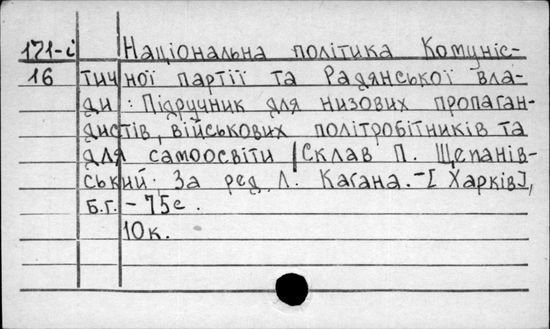 171-і Національна політика Комуніс-
16 тичної партії та Радянської вла-
ди: Підручник для низових пропаган-
дистів, військових політробітників та
для самоосвіти / Склав П. Щепанів-
ський; За ред. Л. Кагана. - [Харків],
Б.Г. - 75с.
10к.